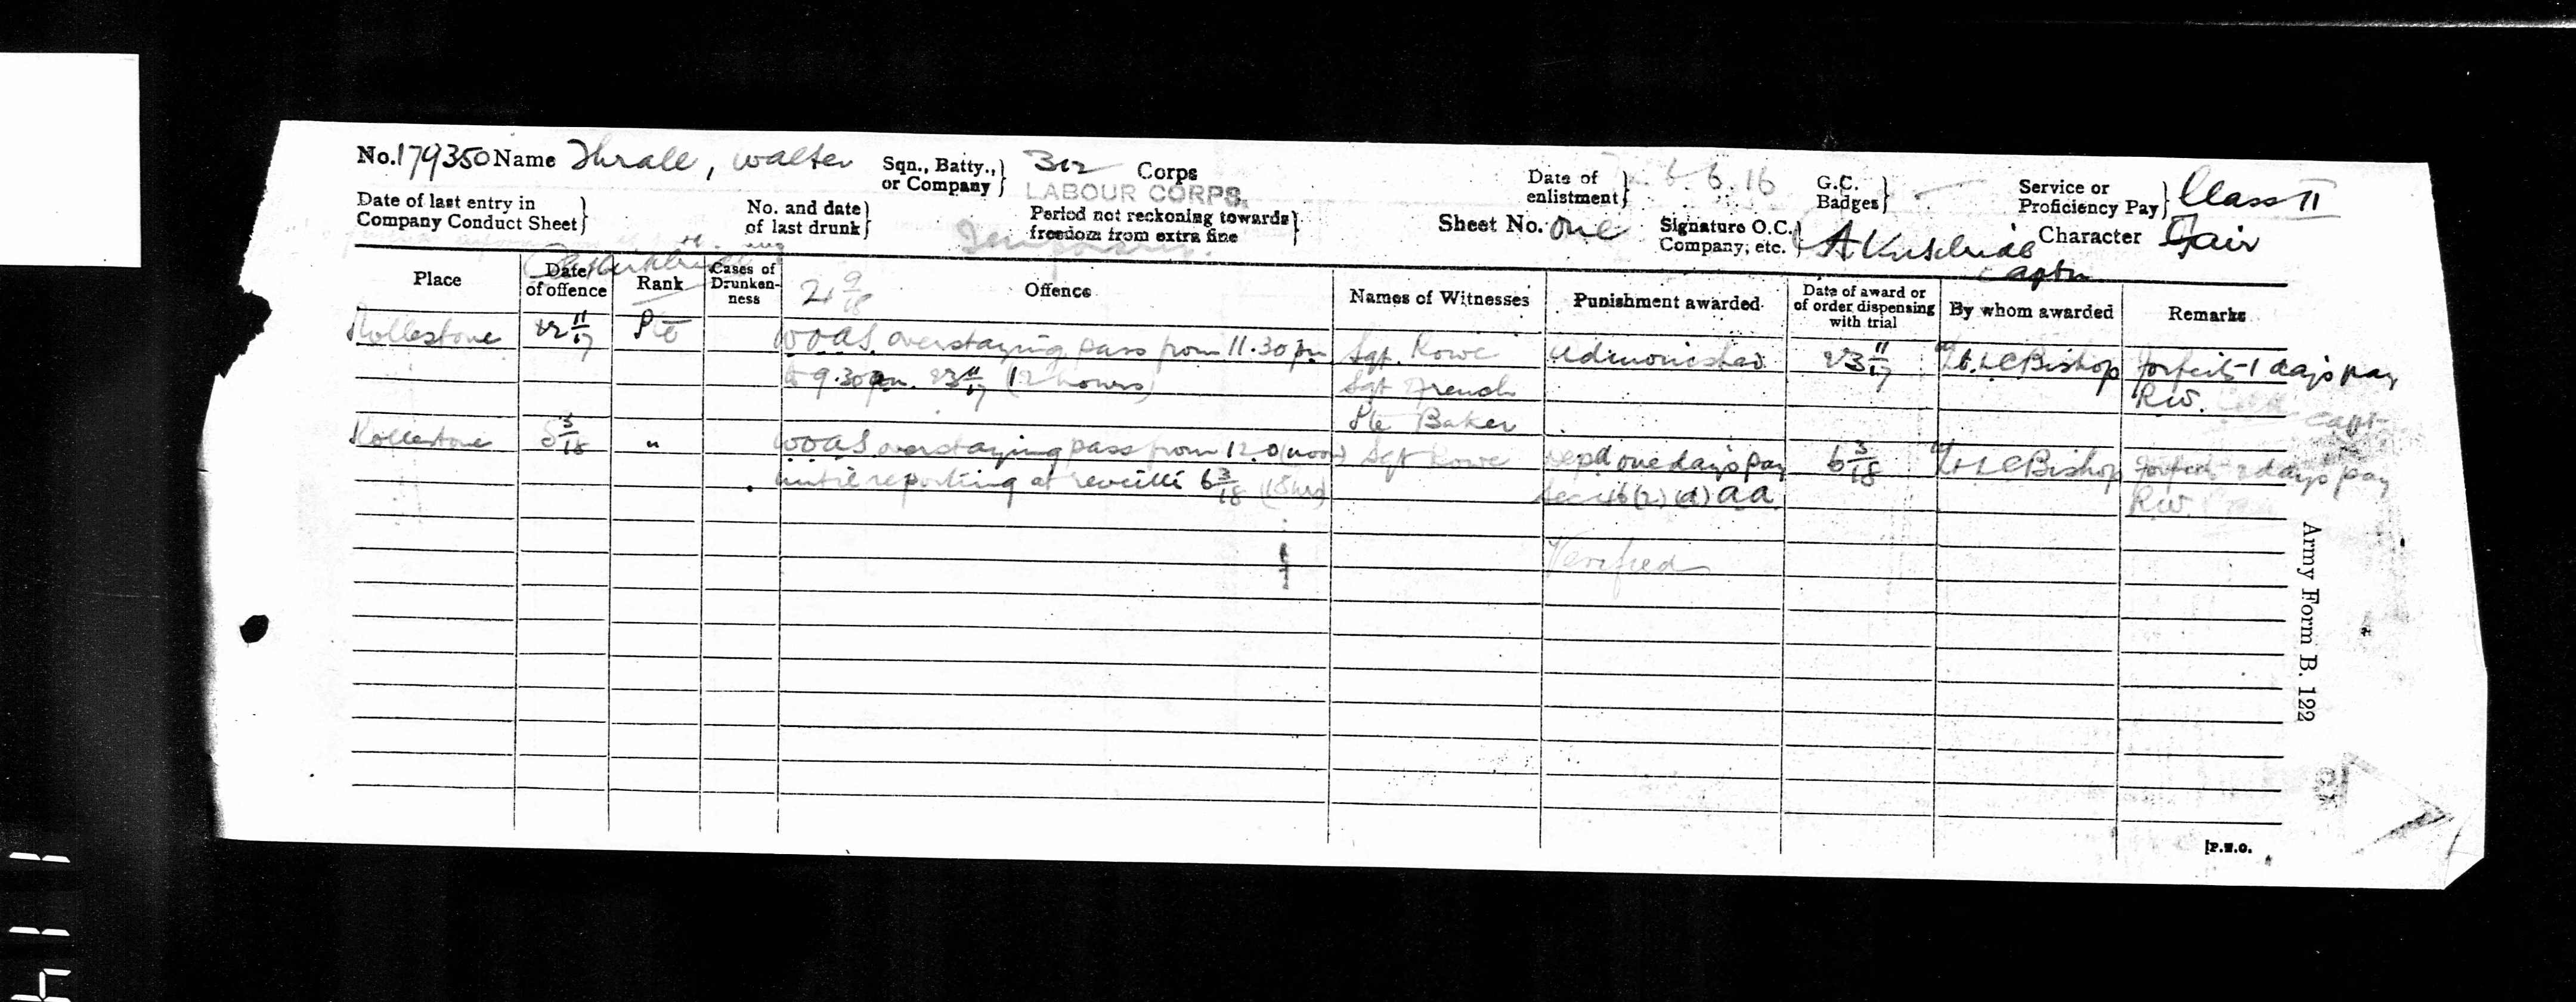 No. 179350 Name Thrall, Walter Sqn., Batty., or Company } 312 Corps LABOUR CORPS. Date of enlistment } 6.6.16 G.C. Badges } — Service or Proficiency Pay } Class II
Date of last entry in Company Conduct Sheet } No. and date of last drunk } Period not reckoning towards freedom from extra fine } Sheet No. One Signature O.C. Company, etc. } Captn Character Fair
Place Date of offence Rank Cases of Drunkenness 21 9/18 Offence Names of Witnesses Punishment awarded Date of award or of order dispensing with trial By whom awarded Remarks
Rollestone 22 11/17 Pte WOAS overstaying pass from 11.30 pm Sgt. Rowe Admonished 23 11/17 Lt. L C Bishop Forfeits 1 days pay
to 9.30 23 11/17 (12 hours) Sgt French R.W. Capt
Pte Baker
Rollestone 5 3/18 " WOAS overstaying pass from 12.0 (noon) Sgt Rowe depd one days pay 6 3/18 Lt L C Bishop Forfeits 2 days pay
until reporting at reveille 6 3/18 (18 hrs) Sec 46 (2) (d) AA R.W.
Verified
Army Form B. 122
[P.T.O.